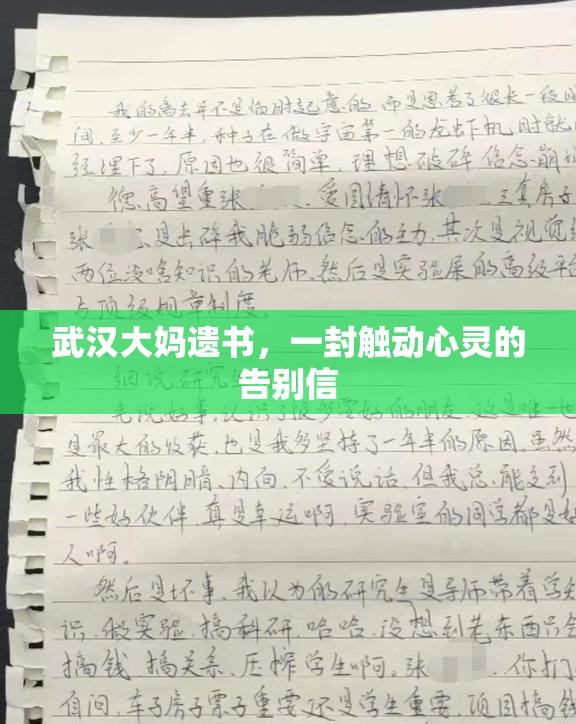 我的离去并不是临时起意的,而是思考了很长一段时
间,至少一年半,种子在做宇宙第一的龙虾机时就
经埋下了,原因也很简单,理想破碎 信念崩塌
德高望重张 爱国情怀张 三套房子
张 是击碎我脆弱信念的主力,其次是视觉组
两位没啥知识的老师,然后是实验屎的高级平台
与顶级规章制度。
武汉大妈遗书,一封触动心灵的
告别信
细说研究生
先说好事,认识了很多要好的朋友,这是唯一也
是最大的收获,也是我多坚持了一年半的原因,虽然
我性格阴暗、内向、不爱说话,但我总能交到
一些好伙伴 真是幸运啊,实验室的同学都是好
人啊。
然后是坏事,我以为的研究生是导师带着学知
识、做实验、搞科研 哈哈,没想到老东西只会
搞钱 搞关系、压榨学生啊。张 你扪
自问,车子房子票子重要还是学生重要,项目搞钱